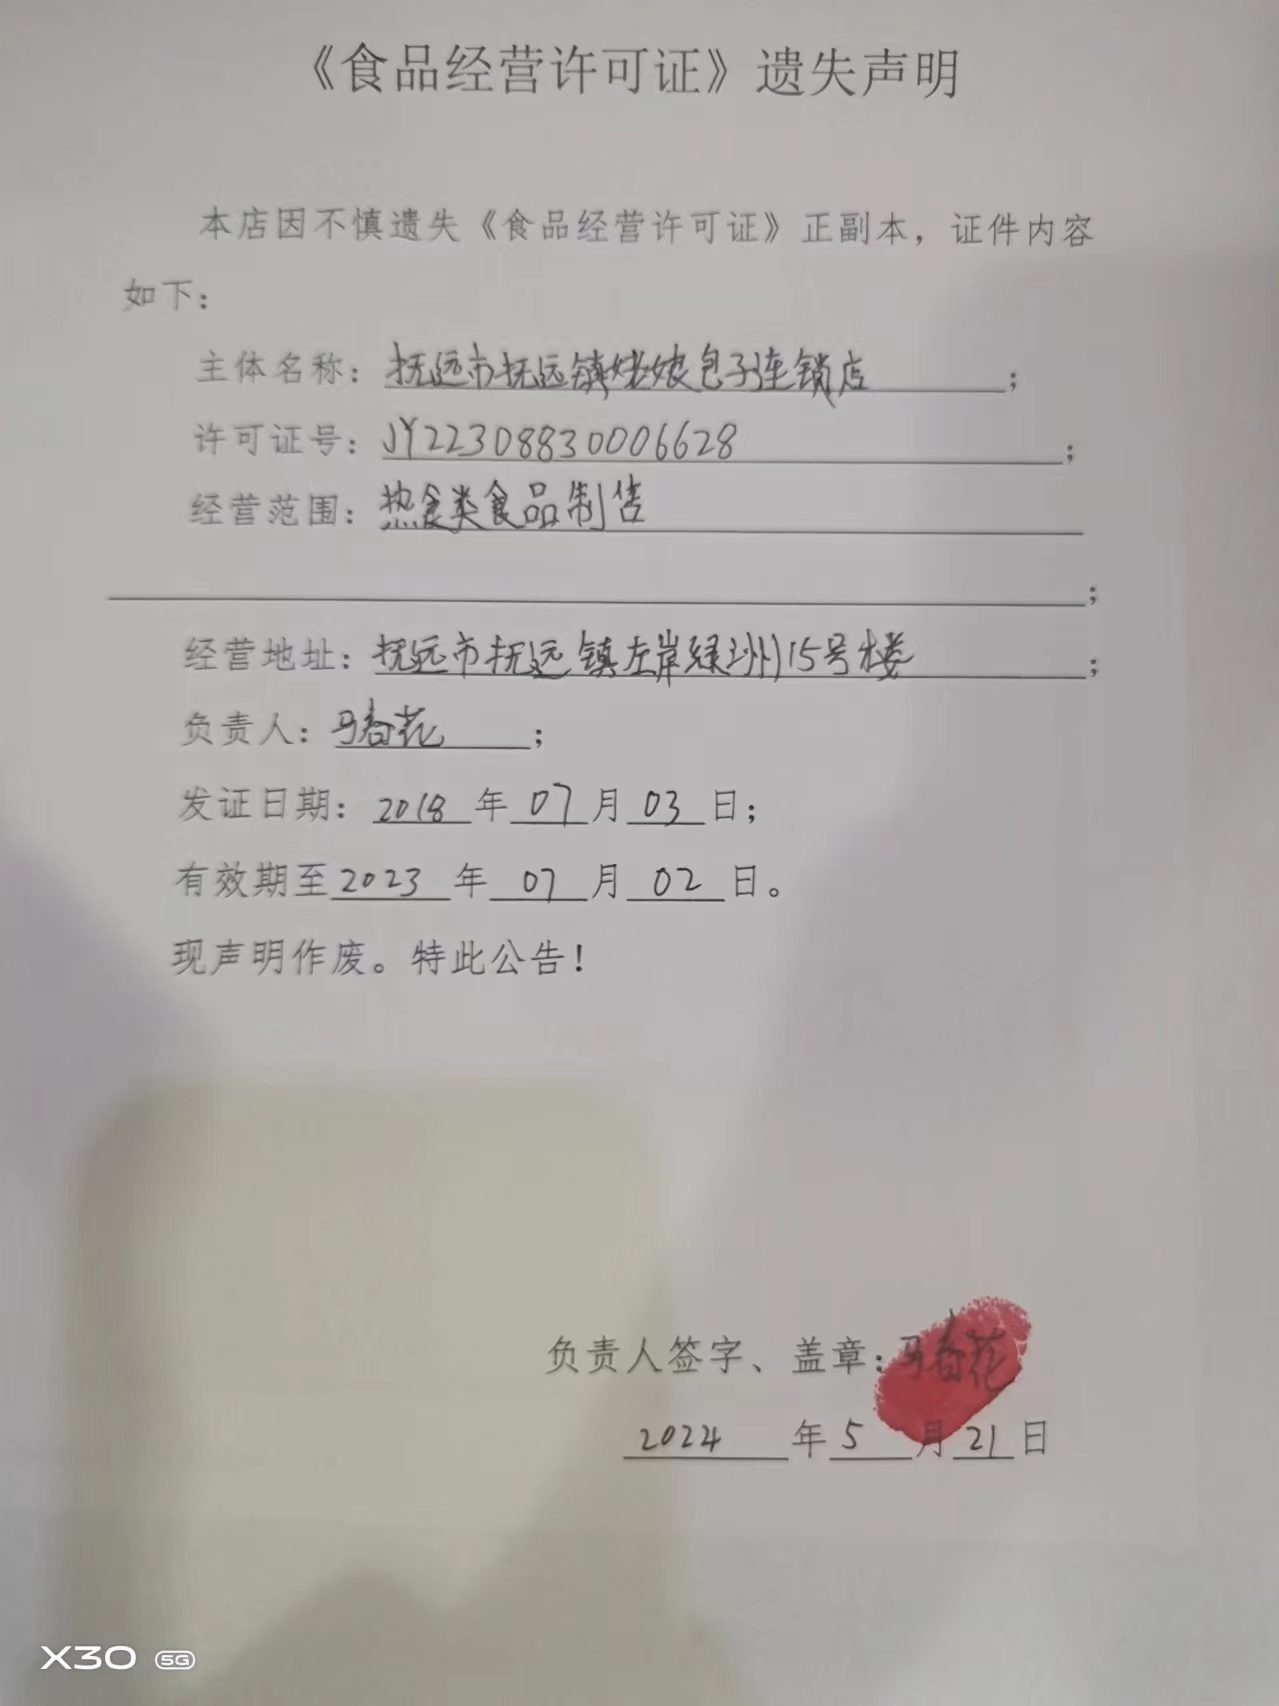 《食品经营许可证》遗失声明
本店因不慎遗失《食品经营许可证》正副本，证件内容
如下：
主体名称：抚远市抚远镇姥娘包子连锁店；
许可证号：JY22308830006628；
经营范围：热食类食品制售
；
经营地址：抚远市抚远镇左岸绿洲15号楼；
负责人：马春花；
发证日期：2018年07月03日；
有效期至2023年07月02日。
现声明作废。特此公告！
负责人签字、盖章：马春花
2024年5月21日
X30 5G